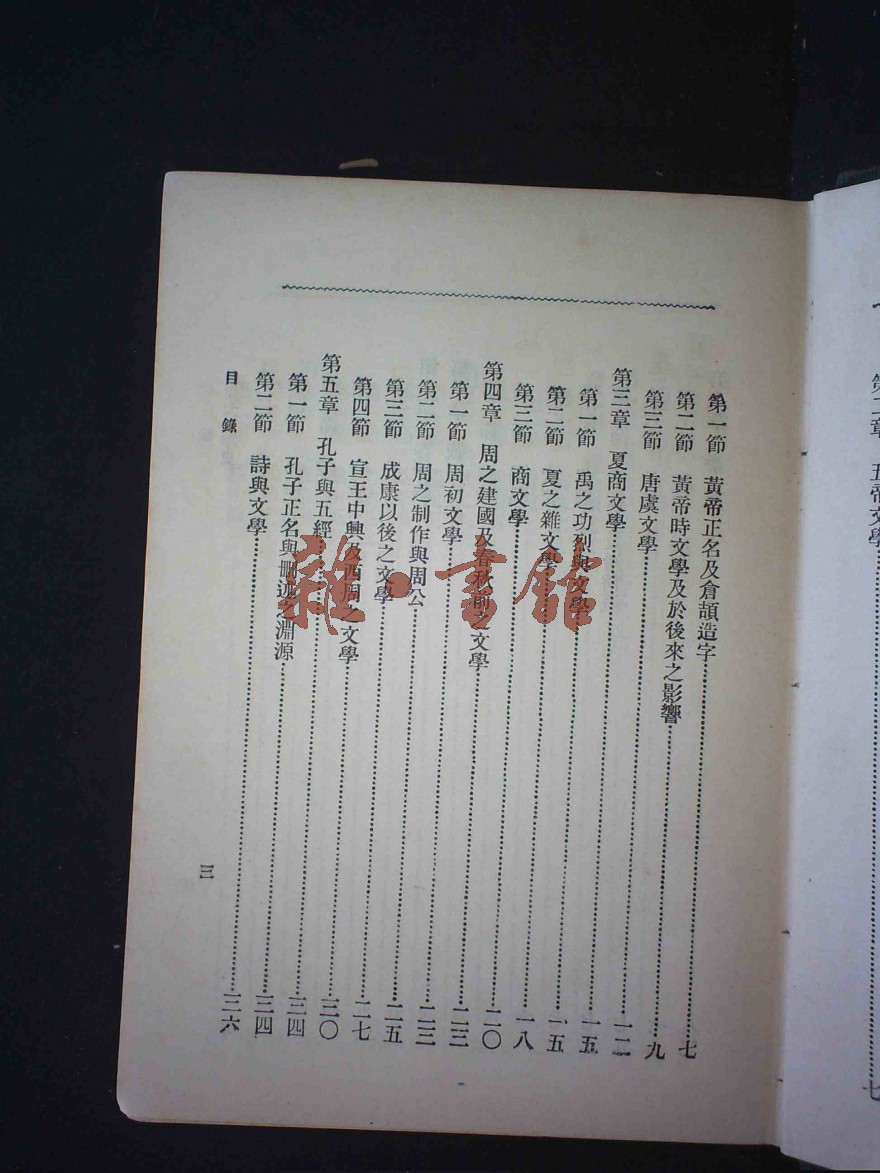 第二章 五帝文學……七
第一節 黃帝正名及倉頡造字……七
第二節 黃帝時文學及於後來之影響……九
第三節 唐虞文學……一二
第三章 夏商文學……一五
第一節 禹之功烈與文學……一五
第二節 夏之雜文學……一八
第三節 商文學……二〇
第四章 周之建國及春秋前之文學……二三
第一節 周初文學……二三
第二節 周之制作與周公……二五
第三節 成康以後之文學……二七
第四節 宣王中興及西周之文學……三〇
第五章 孔子與五經……三四
第一節 孔子正名與刪述之淵源……三四
第二節 詩與文學……三六
目錄
三
雜·書館